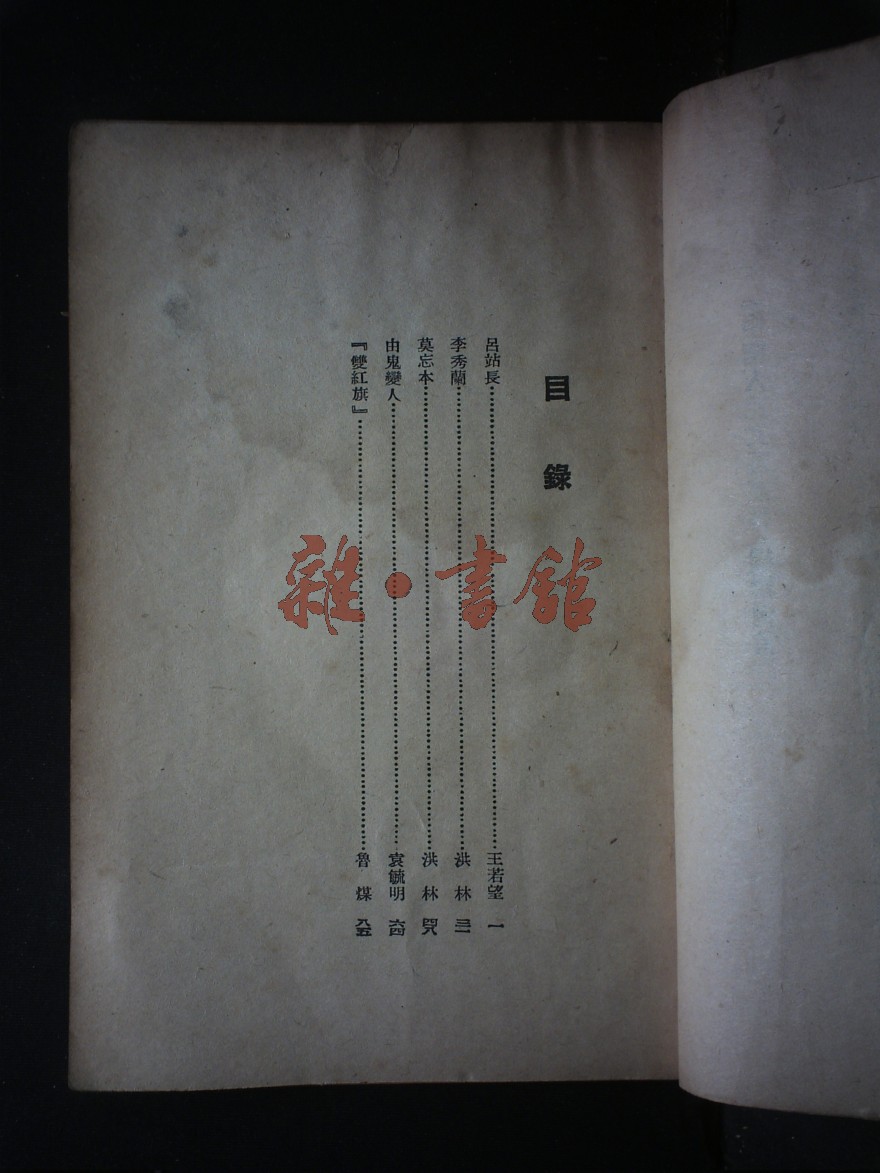 目錄
呂站長……王若望 一
李秀蘭……洪林 三一
莫忘本……洪林 四八
由鬼變人……袁毓明 六四
『雙紅旗』……魯煤 八五
雜·書館